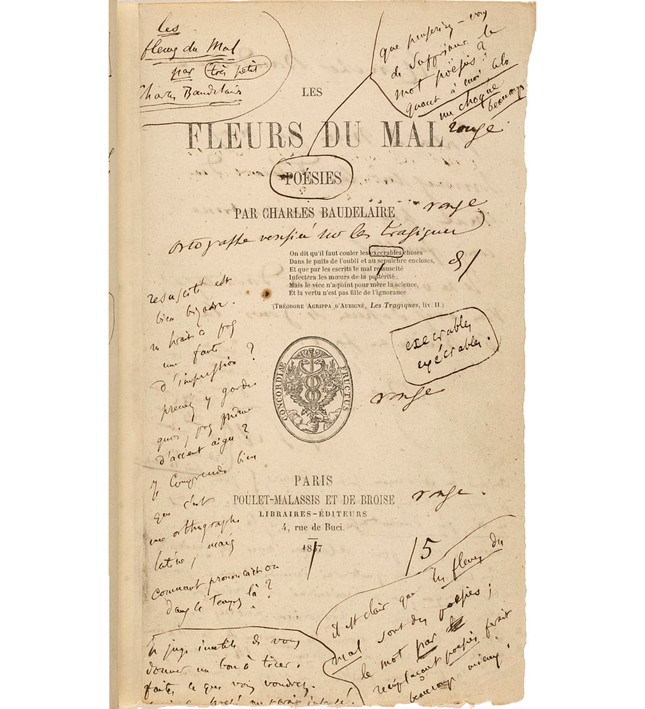 les
fleurs du Mal
par très petit
Charles Baudelaire
que penseriez-vous
de supprimer le
mot poésies?
quant à moi cela
me choque
beaucoup
LES
FLEURS DU MAL
rouge
POÉSIES
PAR CHARLES BAUDELAIRE
rouge
ortographe vérifiée sur les tragiques
On dit qu'il faut couler les execrables choses
Dans le puits de l'oubli et au sepulchre encloses,
Et que par les escrits le mal resuscité
Infectera les mœurs de la postérité;
Mais le vice n'a point pour mère la science,
Et la vertu n'est pas fille de l'ignorance
(THÉODORE AGRIPPA D'AUBIGNÉ, Les Tragiques, liv. II.)
resuscité est
bien bizarre.
une faute
d'impression?
prenez y garde
quoi, pas même
d'accent aigu?
Je comprends bien
que c'est
une orthographe
latine, mais
comment prononçait-on
dans le temps là?
execrables
exécrables.
CONCORDIÆ FRUCTUS
rouge
PARIS
POULET-MALASSIS ET DE BROISE
rouge.
LIBRAIRES-ÉDITEURS
4, rue de Buci.
1857
il est clair que les fleurs du
mal sont des poésies;
le mot par
remplaçant poésies ferait
beaucoup mieux.
Je juge inutile de vous
donner un bon à tirer.
faites ce que vous voudrez.